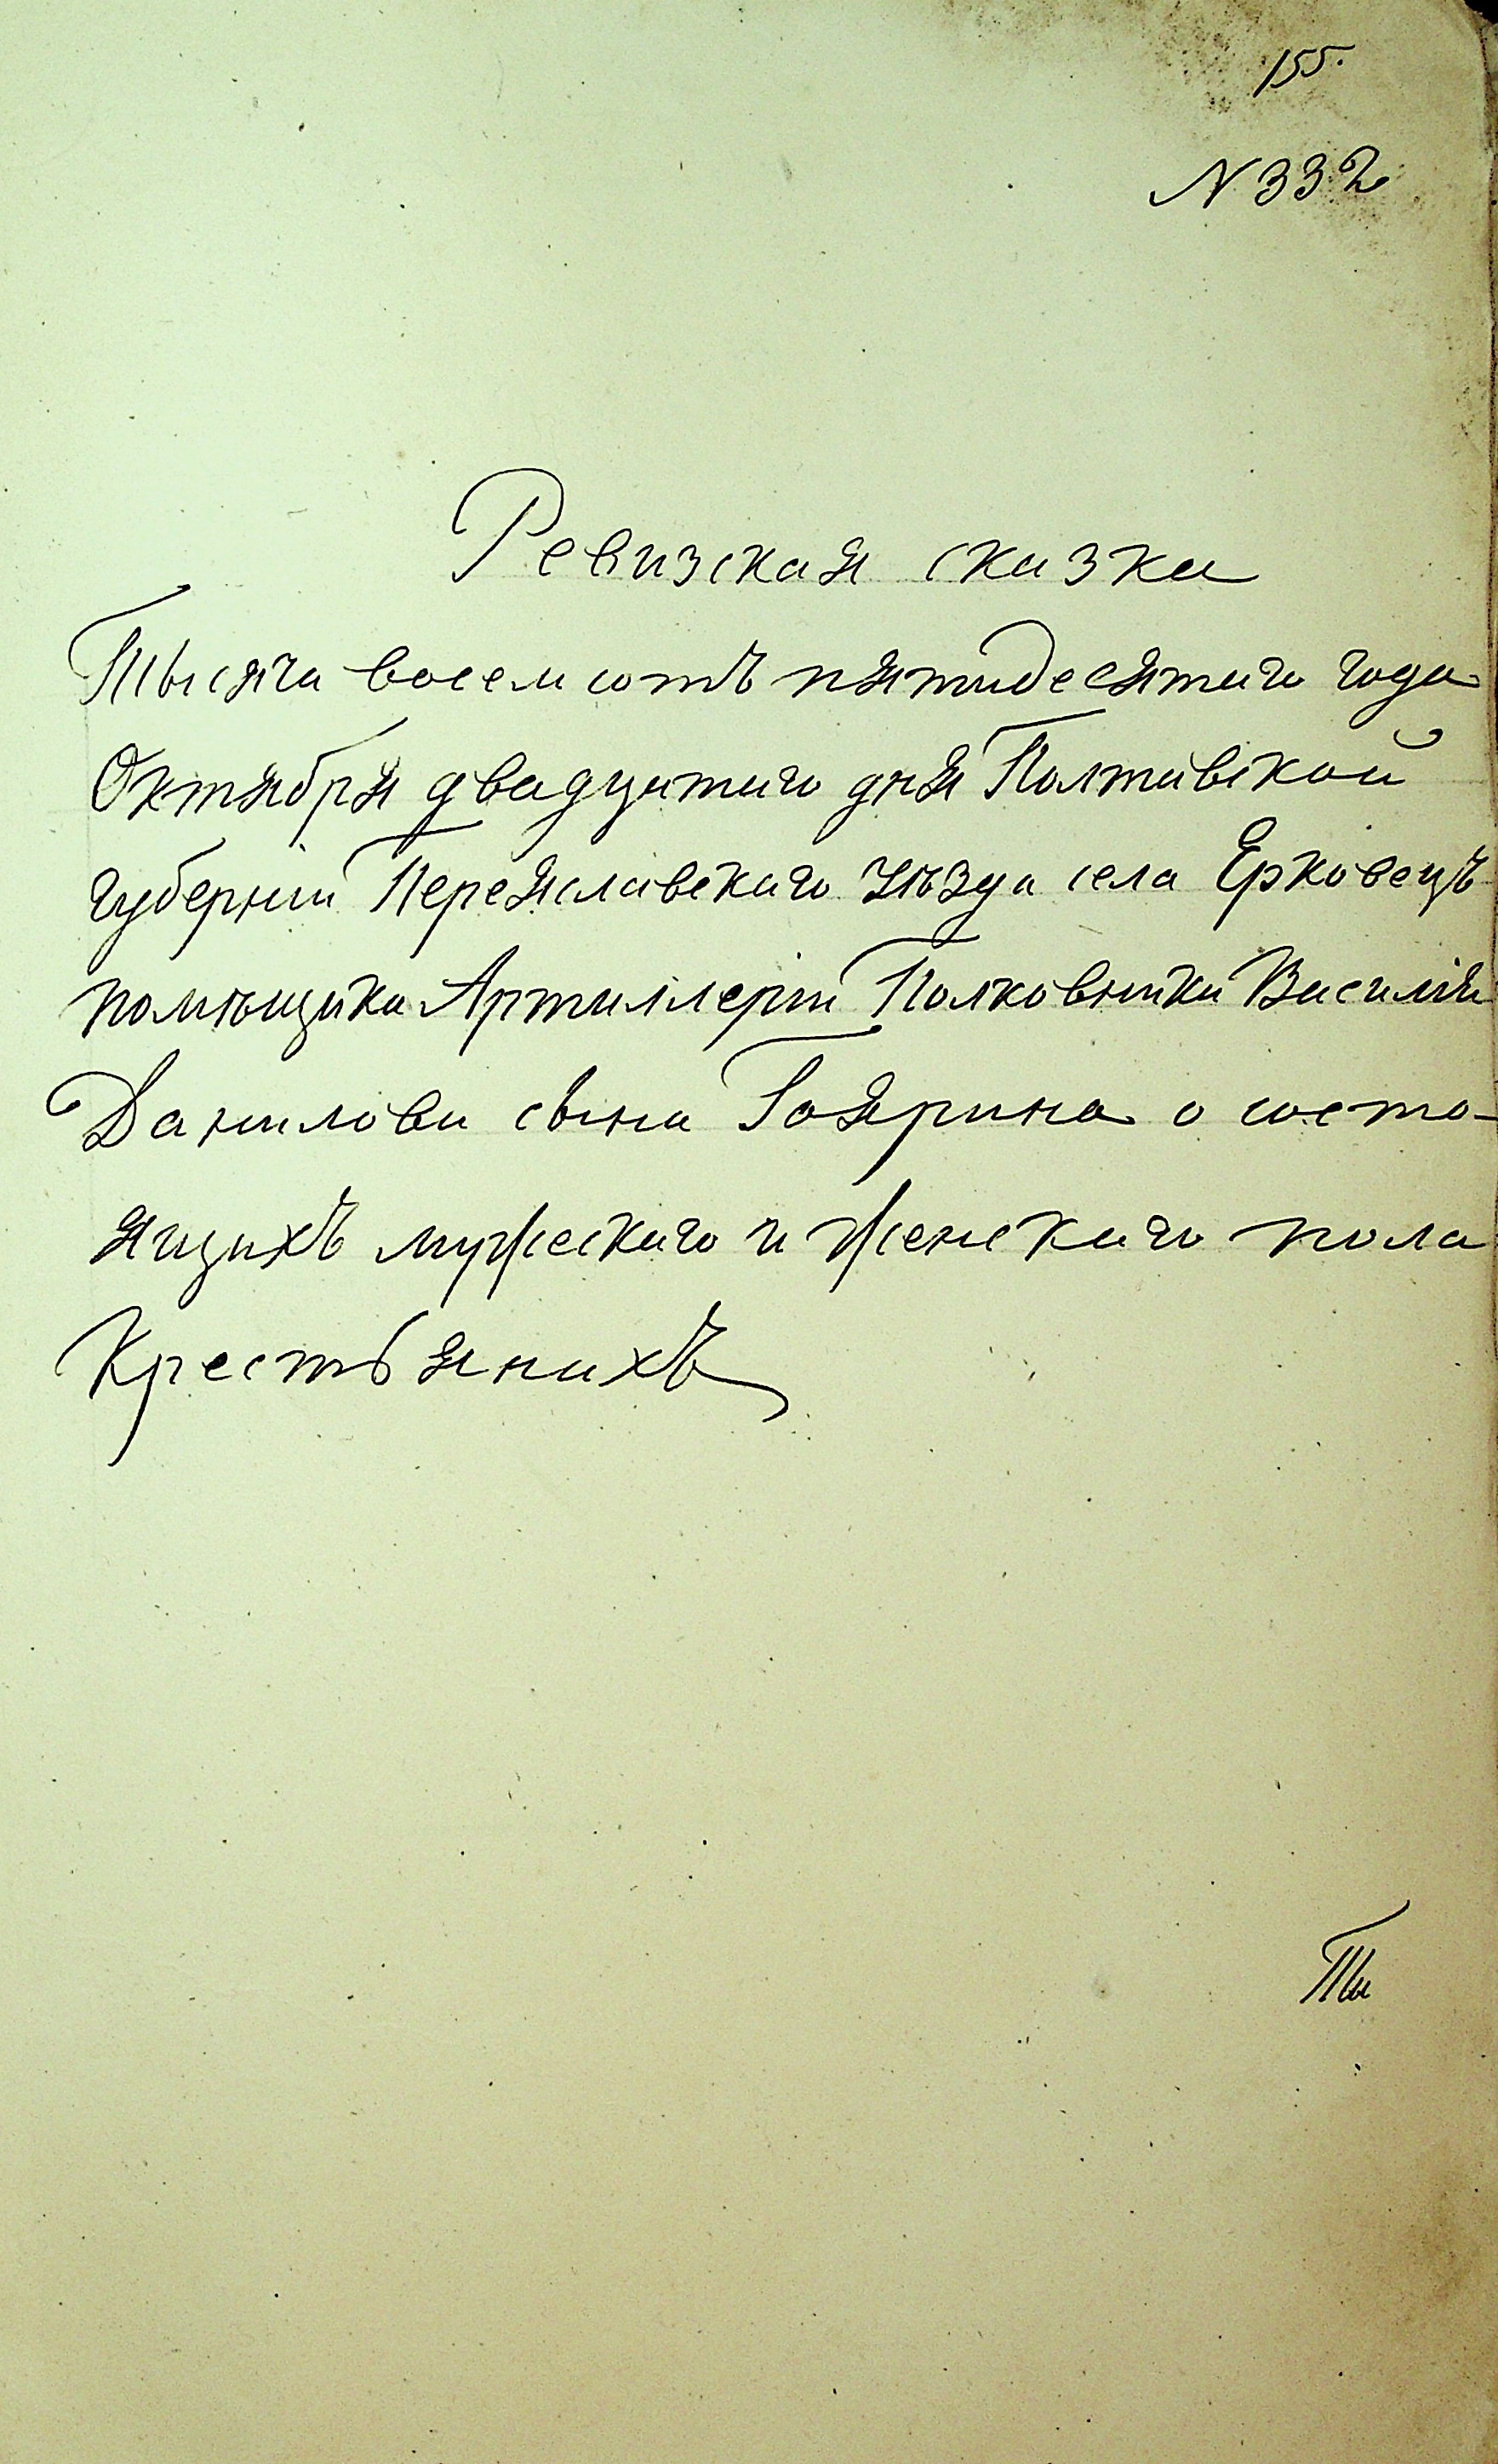 155.
N 332
Ревизская сказка
Тысяча восемсотъ пятидесятаго года
Октября двадцатаго дня Полтавской
губерніи Переяславскаго уѣзда села Ерковецъ
помѣщика Артиллеріи Полковника Василія
Данилова сына Гоярина о состо-
ящихъ мужескаго и женскаго пола
Крестьянахъ
Ты